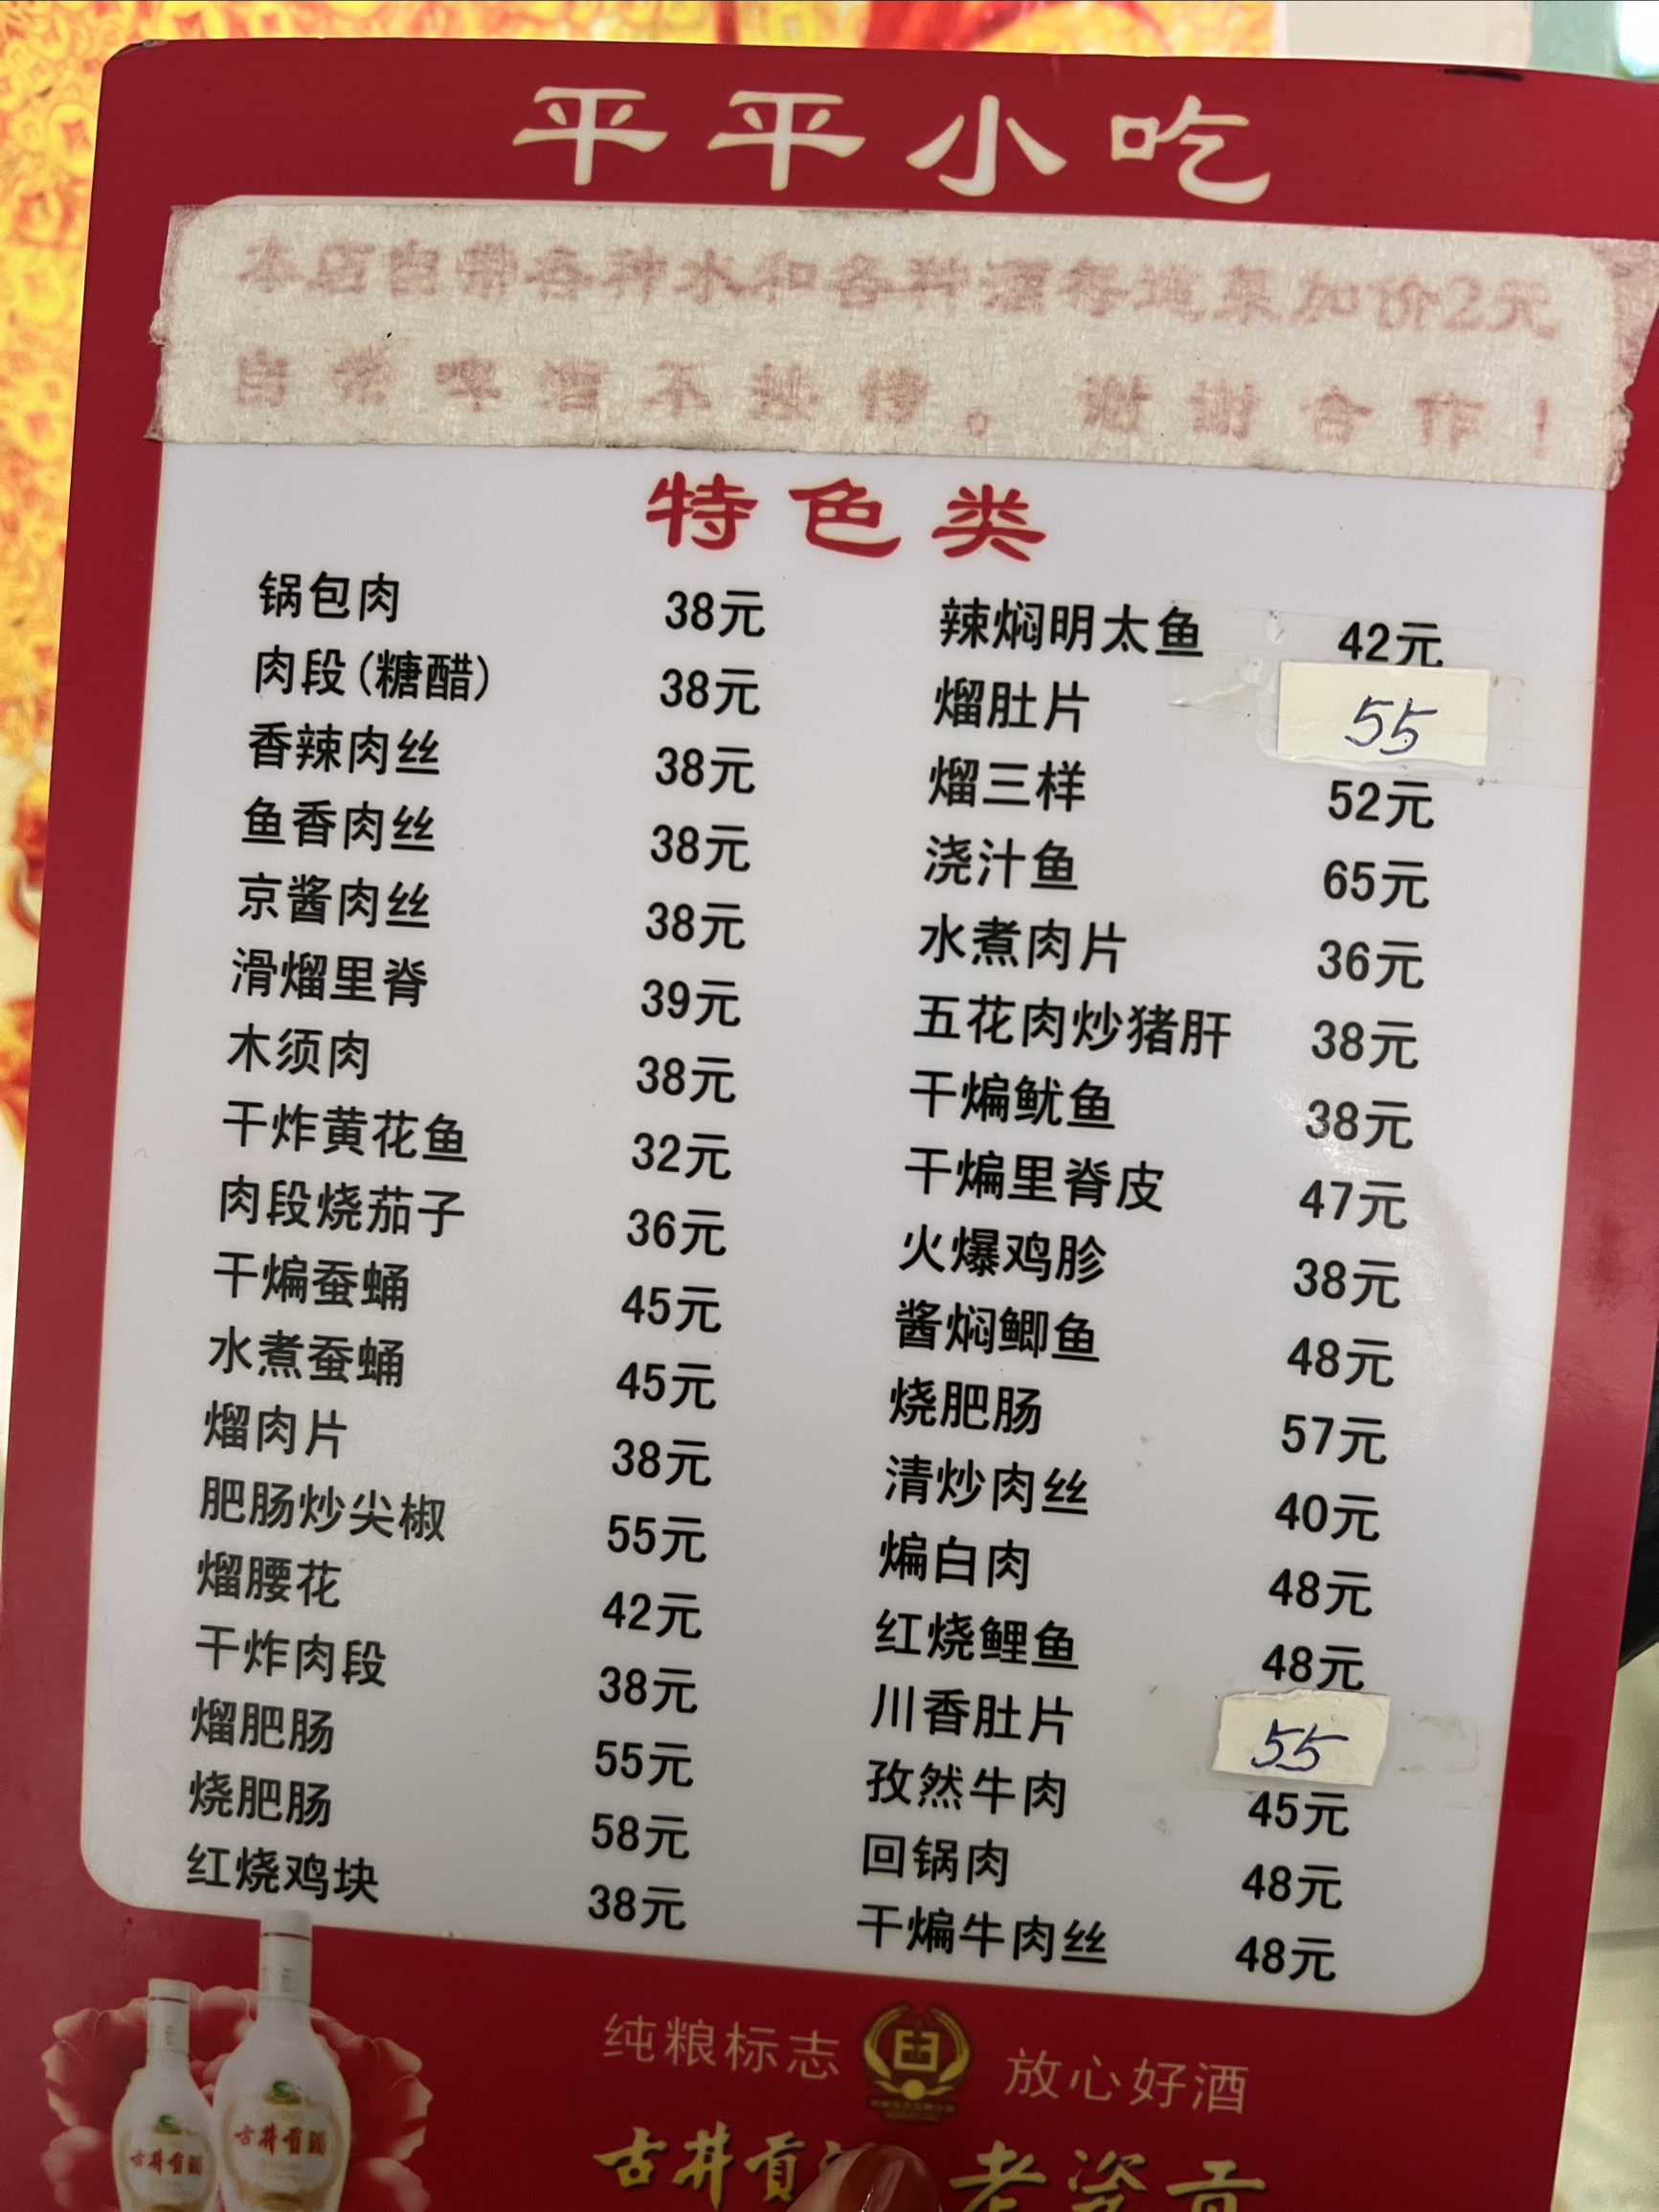 平平小吃
本店自带各种水和各种酒每道菜加价2元
自带啤酒不接待。谢谢合作！
特色类
锅包肉 38元
肉段(糖醋) 38元
香辣肉丝 38元
鱼香肉丝 38元
京酱肉丝 38元
滑熘里脊 39元
木须肉 38元
干炸黄花鱼 32元
肉段烧茄子 36元
干煸蚕蛹 45元
水煮蚕蛹 45元
熘肉片 38元
肥肠炒尖椒 55元
熘腰花 42元
干炸肉段 38元
熘肥肠 55元
烧肥肠 58元
红烧鸡块 38元
辣焖明太鱼 42元
熘肚片 55
熘三样 52元
浇汁鱼 65元
水煮肉片 36元
五花肉炒猪肝 38元
干煸鱿鱼 38元
干煸里脊皮 47元
火爆鸡胗 38元
酱焖鲫鱼 48元
烧肥肠 57元
清炒肉丝 40元
煸白肉 48元
红烧鲤鱼 48元
川香肚片 55
孜然牛肉 45元
回锅肉 48元
干煸牛肉丝 48元
纯粮标志 放心好酒
古井贡酒 老瓷贡
古井贡酒
古井贡酒